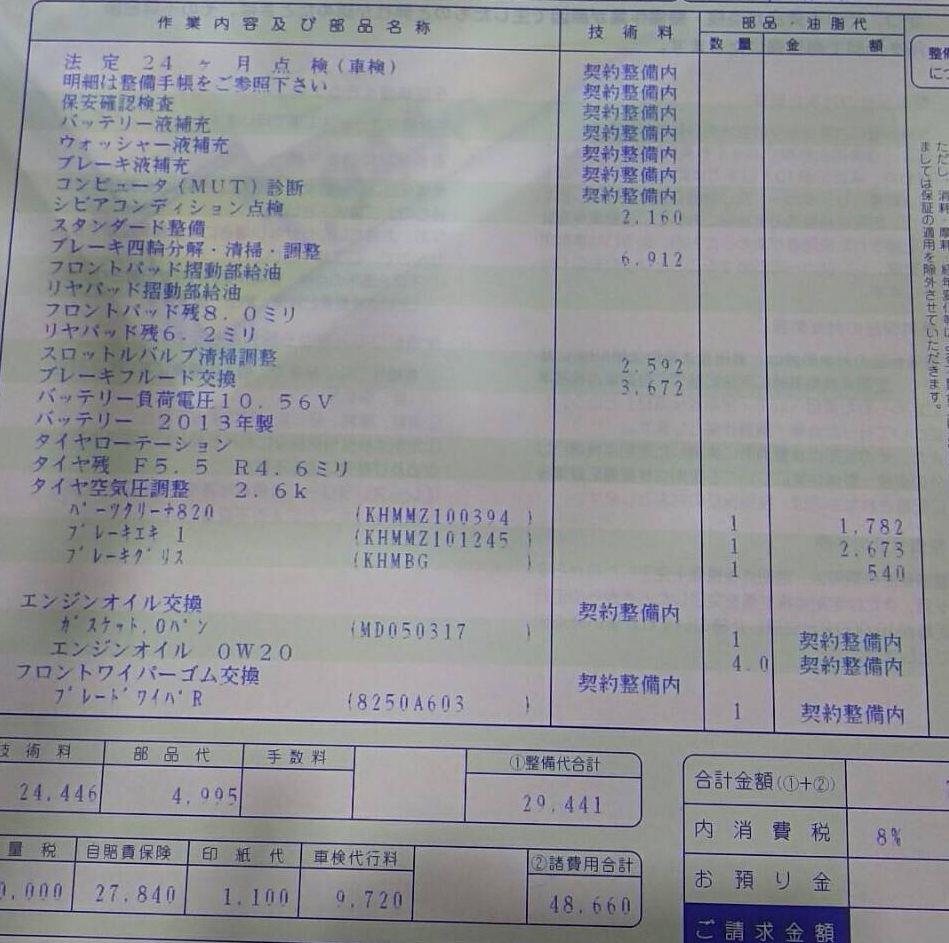 作業内容及び部品名称 技術料 部品・油脂代
数量 金額
法定24ヶ月点検(車検) 契約整備内
明細は整備手帳をご参照下さい 契約整備内
保安確認検査 契約整備内
バッテリー液補充 契約整備内
ウォッシャー液補充 契約整備内
ブレーキ液補充 契約整備内
コンピュータ(MUT)診断 契約整備内
シビアコンディション点検 2,160
スタンダード整備
ブレーキ四輪分解・清掃・調整 6,912
フロントパッド摺動部給油
リヤパッド摺動部給油
フロントパッド残8.0ミリ
リヤパッド残6.2ミリ
スロットルバルブ清掃調整 2,592
ブレーキフルード交換 3,672
バッテリー負荷電圧10.56V
バッテリー 2013年製
タイヤローテーション
タイヤ残 F5.5 R4.6ミリ
タイヤ空気圧調整 2.6k
パーツクリーナ820 (KHMMZ100394 ) 1 1,782
ブレーキエキ 1 (KHMMZ101245 ) 1 2,673
ブレーキグリス (KHMBG ) 1 540
エンジンオイル交換 契約整備内
ガスケット,Oパン (MD050317 ) 1 契約整備内
エンジンオイル 0W20 4.0 契約整備内
フロントワイパーゴム交換 契約整備内
ブレードワイパR (8250A603 ) 1 契約整備内
技術料 部品代 手数料 ①整備代合計
24,446 4,995 29,441
量税 自賠責保険 印紙代 車検代行料 ②諸費用合計
0,000 27,840 1,100 9,720 48,660
合計金額(①+②)
内消費税 8%
お預り金
ご請求金額
ましては保証の適用を除外させていただきます。